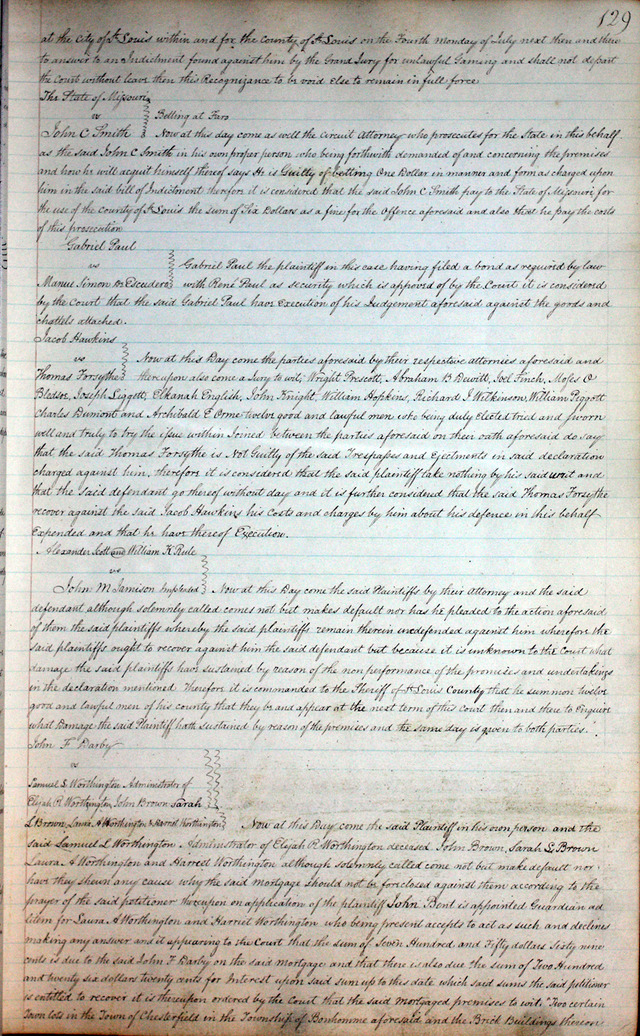 129
at the City of St Louis within and for the County of St Louis on the Fourth Monday of July next then and there
to answer to an Indictment found against him by the Grand Jury for unlawful Gaming and shall not depart
the Court without leave then this Recognizance to be void Else to remain in full force
The State of Missouri
vs Betting at Faro
John C Smith Now at this day come as well the Circuit Attorney who prosecutes for the State in this behalf
as the said John C Smith in his own proper person who being forthwith demanded of and concerning the premises
and how he will acquit himself thereof says He is Guilty of betting One Dollar in manner and form as charged upon
him in the said bill of Indictment therefore it is considered that the said John C Smith pay to the State of Missouri for
the use of the County of St Louis the sum of Six Dollars as a fine for the Offence aforesaid and also that he pay the costs
of this prosecution
Gabriel Paul
vs Gabriel Paul the plaintiff in this case having filed a bond as required by law
Manuel Simon de Escudera with René Paul as security which is appoved of by the Court it is considered
by the Court that the said Gabriel Paul have Execution of his Judgement aforesaid against the goods and
chattels attached.
Jacob Hawkins
vs Now at this Day come the parties aforesaid by their respective attornies aforesaid and
Thomas Forsythe thereupon also come a Jury to wit; Wright Prescott, Abraham B Dewitt, Joel Finch, Moses O
Bledsoe, Joseph Liggett, Elkanah English, John Knight, William Hopkins, Richard J Wilkinson, William Piggott
Charles Dumont and Archibald E Orme twelve good and lawful men who being duly Elected tried and sworn
well and truly to try the issue within Joined between the parties aforesaid on their oath aforesaid do say
that the said Thomas Forsythe is Not Guilty of the said Trespasses and Ejectments in said declaration
charged against him. therefore it is considered that the said plaintiff take nothing by his said writ and
that the said defendant go thereof without day and it is further considered that the said Thomas Forsythe
recover against the said Jacob Hawkins his Costs and charges by him about his defence in this behalf
Expended and that he have thereof Execution.
Alexander Scott and William K Rule
vs
John M Jamison Impleaded Now at this Day come the said Plaintiffs by their Attorney and the said
defendant although solemnly called comes not but makes default nor has he pleaded to the action aforesaid
of them the said plaintiffs whereby the said plaintiffs remain therein undefended against him wherefore the
said plaintiffs ought to recover against him the said defendant but because it is unknown to the Court what
damage the said plaintiffs have sustained by reason of the non performance of the promises and undertakings
in the declaration mentioned Therefore it is commanded to the Sheriff of St Louis County that he summon twelve
good and lawful men of his county that they be and appear at the next term of this Court then and there to Enquire
what Damage the said Plaintiff hath sustained by reason of the premises and the same day is given to both parties.
John F Darby
vs
Samuel S Worthington Administrator of
Elijah R Worthington, John Brown Sarah
L Brown, Laura A Worthington & Harriet Worthington Now at this Day come the said Plaintiff in his own person and the
said Samuel L Worthington Administrator of Elijah R Worthington deceased John Brown, Sarah L Brown
Laura A Worthington and Harriet Worthington although solemnly called come not but make default nor
have they shewn any cause why the said mortgage should not be forclosed against them according to the
prayer of the said petitioner thereupon on application of the plaintiff John Bent is appointed Guardian ad
litem for Laura A Worthington and Harriet Worthington who being present accepts to act as such and declines
making any answer and it appearing to the Court that the sum of Seven Hundred and Fifty dollars Sixty nine
cents is due to the said John F Darby on the said Mortgage and that there is also due the sum of Two Hundred
and twenty six dollars twenty cents for Interest upon said sum up to this date which said sums the said petitioner
is entitled to recover it is thereupon ordered by the Court that the said Mortgaged premises to wit; Two certain
Town lots in the Town of Chesterfield in the Township of Bonhomme aforesaid and the Brick Buildings thereon